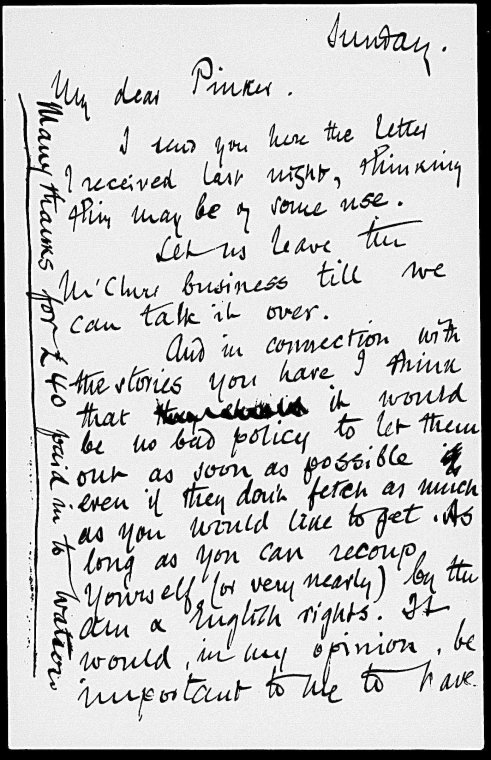 Sunday.
My dear Pinker.
I send you here the letter
I received last night, thinking
this may be of some use.
Let us leave the
McClure business till we
can talk it over.
And in connection with
the stories you have I think
that it would
be no bad policy to let them
out as soon as possible
even if they don't fetch as much
as you would like to get. As
long as you can recoup
yourself (or very nearly) by the
Am & English rights. It
would, in my opinion, be
important to me to have
Many thanks for £40 paid in to Watson